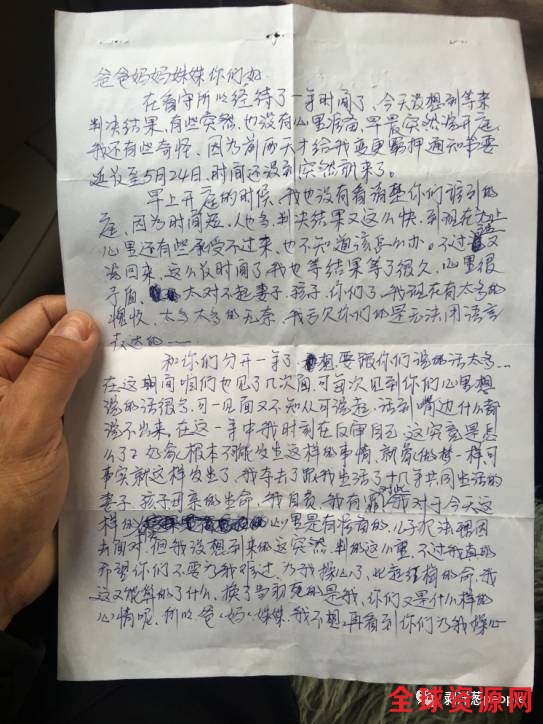 爸爸妈妈妹妹你们好.
在看守所已经待了一年时间了、今天没想到等来
判决结果、有些突然、也没有心里准备、早晨突然说开庭.
我还有些奇怪、因为前两天才给我变更羁押通知书要
延长至5月24日、时间还没到突然就来了。
早上开庭的时候、我也没有看清楚你们谁到的
庭、因为时间短、人也多、判决结果又这么快、到现在为止
心里还有些承受不过来、也不知道该怎么办。不过话又
说回来、这么长时间了、我也等结果等了很久、心里很
矛盾、太对不起妻子、孩子、你们了、我现在有太多的
悔恨、太多太多的无奈、我亏欠你们的是无法用语言
表达的……
和你们分开一年了、想要跟你们说的话太多…
在这期间咱们也见了几次面、可每次见到你们心里想
说的话很多、可一见面又不知从可说起、话到嘴边什么都
说不出来、在这一年中我时刻在反审自己、这究竟是怎
么了?如命根本不能发生这样的事情、就象做梦一样可
事实就这样发生了、我夺去了跟我生活了十几年共同生活的
妻子、孩子母亲的生命、我自责、我有罪、我对于今天这
样的心里是有准备的、儿子犯法理因
去面对、但我没想到来的这突然、判的这么重、不过我真的
希望你们不要为我难过、为我操心了、比起结梅的命、我
这又能算的了什么、换了当初死的是我、你们又是什么样的
心情呢、所以爸、妈、妹妹、我不想再看到你们为我操心
剥洋葱people
全球资源网